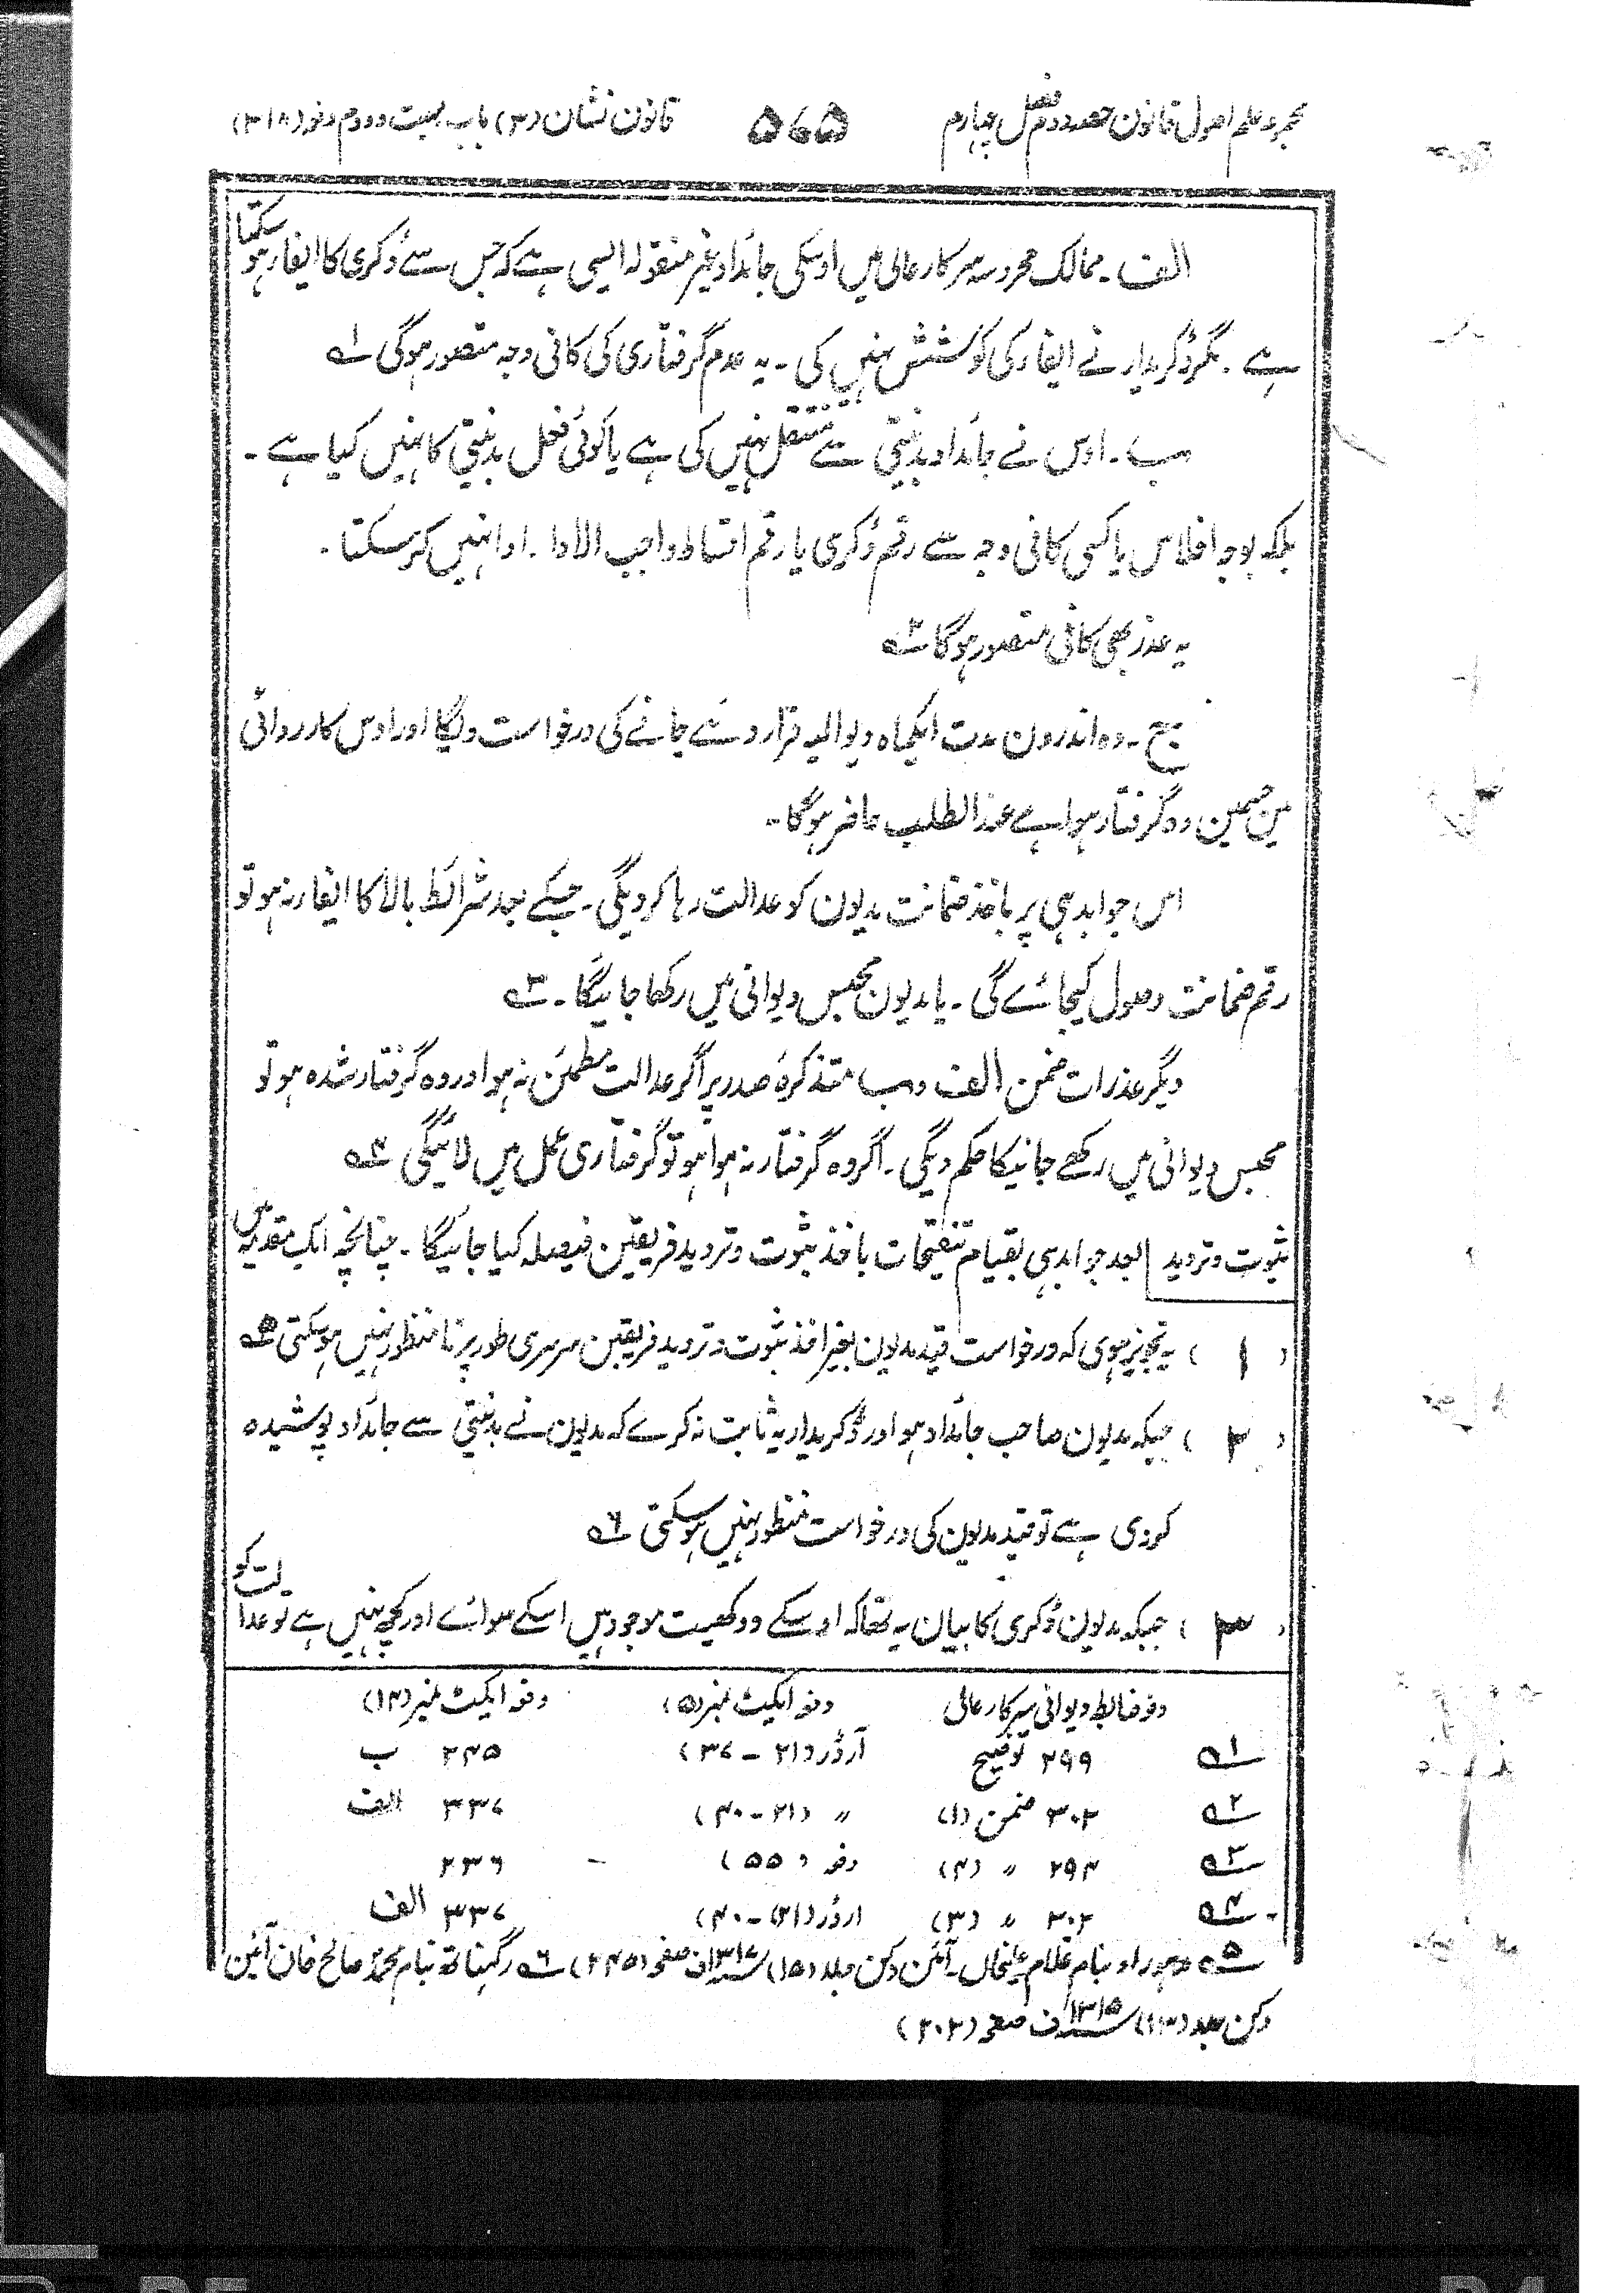 مجموعہ علم اصول قانون حصہ دوم فصل چہارم ۵۶۵ قانون نشان (۳) باب بست و دوم دفعہ (۳۱۸)
الف ۔ ممالک محروسہ سرکار عالی میں اوسکی جائداد غیر منقولہ ایسی ہے کہ جس سے ڈگری کا ایفار ہو سکتا
ہے ۔ مگر ڈگریدار نے ایفار کی کوشش نہیں کی ۔ یہ عدم گرفتاری کی کافی وجہ متصور ہوگی ۱؎
ب ۔ اوس نے جائداد بدنیتی سے منتقل نہیں کی ہے یا کوئی فعل بدنیتی کا نہیں کیا ہے ۔
بلکہ بوجہ افلاس یا کسی کافی وجہ سے رقم ڈگری یا رقم اقساط واجب الادا ۔ ادا نہیں کرسکتا ۔
یہ عذر بھی کافی متصور ہوگا ۲؎
ج ۔ وہ اندرون مدت ایکماہ دیوالیہ قرار دئے جانے کی درخواست دیگا اور اوس کارروائی
میں جسمین وہ گرفتار ہوا ہے عند الطلب حاضر ہوگا ۔
اس جوابدہی پر باخذ ضمانت مدیون کو عدالت رہا کردیگی ۔ جسکے بعد شرائط بالا کا ایفار نہ ہو تو
رقم ضمانت وصول کیجائے گی ۔ یا مدیون محبس دیوانی میں رکھا جائیگا ۔ ۳؎
دیگر عذرات ضمن الف و ب متذکرہ صدر پر اگر عدالت مطمئن نہ ہو اور وہ گرفتار شدہ ہو تو
محبس دیوانی میں رکھے جانیکا حکم دیگی ۔ اگر وہ گرفتار نہ ہوا ہو تو گرفتاری عمل میں لائیگی ۴؎
ثبوت و تردید بعد جوابدہی بقیام تنقیحات باخذ ثبوت و تردید فریقین فیصلہ کیا جائیگا ۔ چنانچہ ایک مقدمہ میں
(۱) یہ تجویز ہوی کہ درخواست قید مدیون بغیر اخذ ثبوت و تردید فریقین سرسری طور پر نامنظور نہیں ہوسکتی ۵؎
(۲) جبکہ مدیون صاحب جائداد ہو اور ڈگریدار یہ ثابت نہ کرے کہ مدیون نے بدنیتی سے جائداد پوشیدہ
کردی ہے تو قید مدیون کی درخواست منظور نہیں ہوسکتی ۶؎
(۳) جبکہ مدیون ڈگری کا بیان یہ تھا کہ اوسکے دو کھیت موجود ہیں اسکے سوائے اور کچھ نہیں ہے تو عدالت کو
دفعہ ضابطہ دیوانی سرکار عالی دفعہ ایکٹ نمبر (۵) دفعہ ایکٹ نمبر (۱۴)
۱؎ ۲۹۹ توضیح آرڈر (۲۱ – ۳۷) ۲۴۵ ب
۲؎ ۳۰۲ ضمن (۱) ″ (۲۱ – ۴۰) ۳۳۷ الف
۳؎ ۲۹۴ ″ (۴) دفعہ (۵۵) – ۲۳۶
۴؎ ۳۰۲ ″ (۳) ارڈر (۲۱ – ۴۰) ۳۳۷ الف
۵؎ بنام غلام علیخاں ۔ آئین دکن جلد (۱۵) ۱۳۱۷ ف صفحہ (۲۴۵) ۶؎ رگہناتھ بنام محمد صالح خان آئین
دکن جلد (۱۳) ۱۳۱۵ ف صفحہ (۲۰۲)